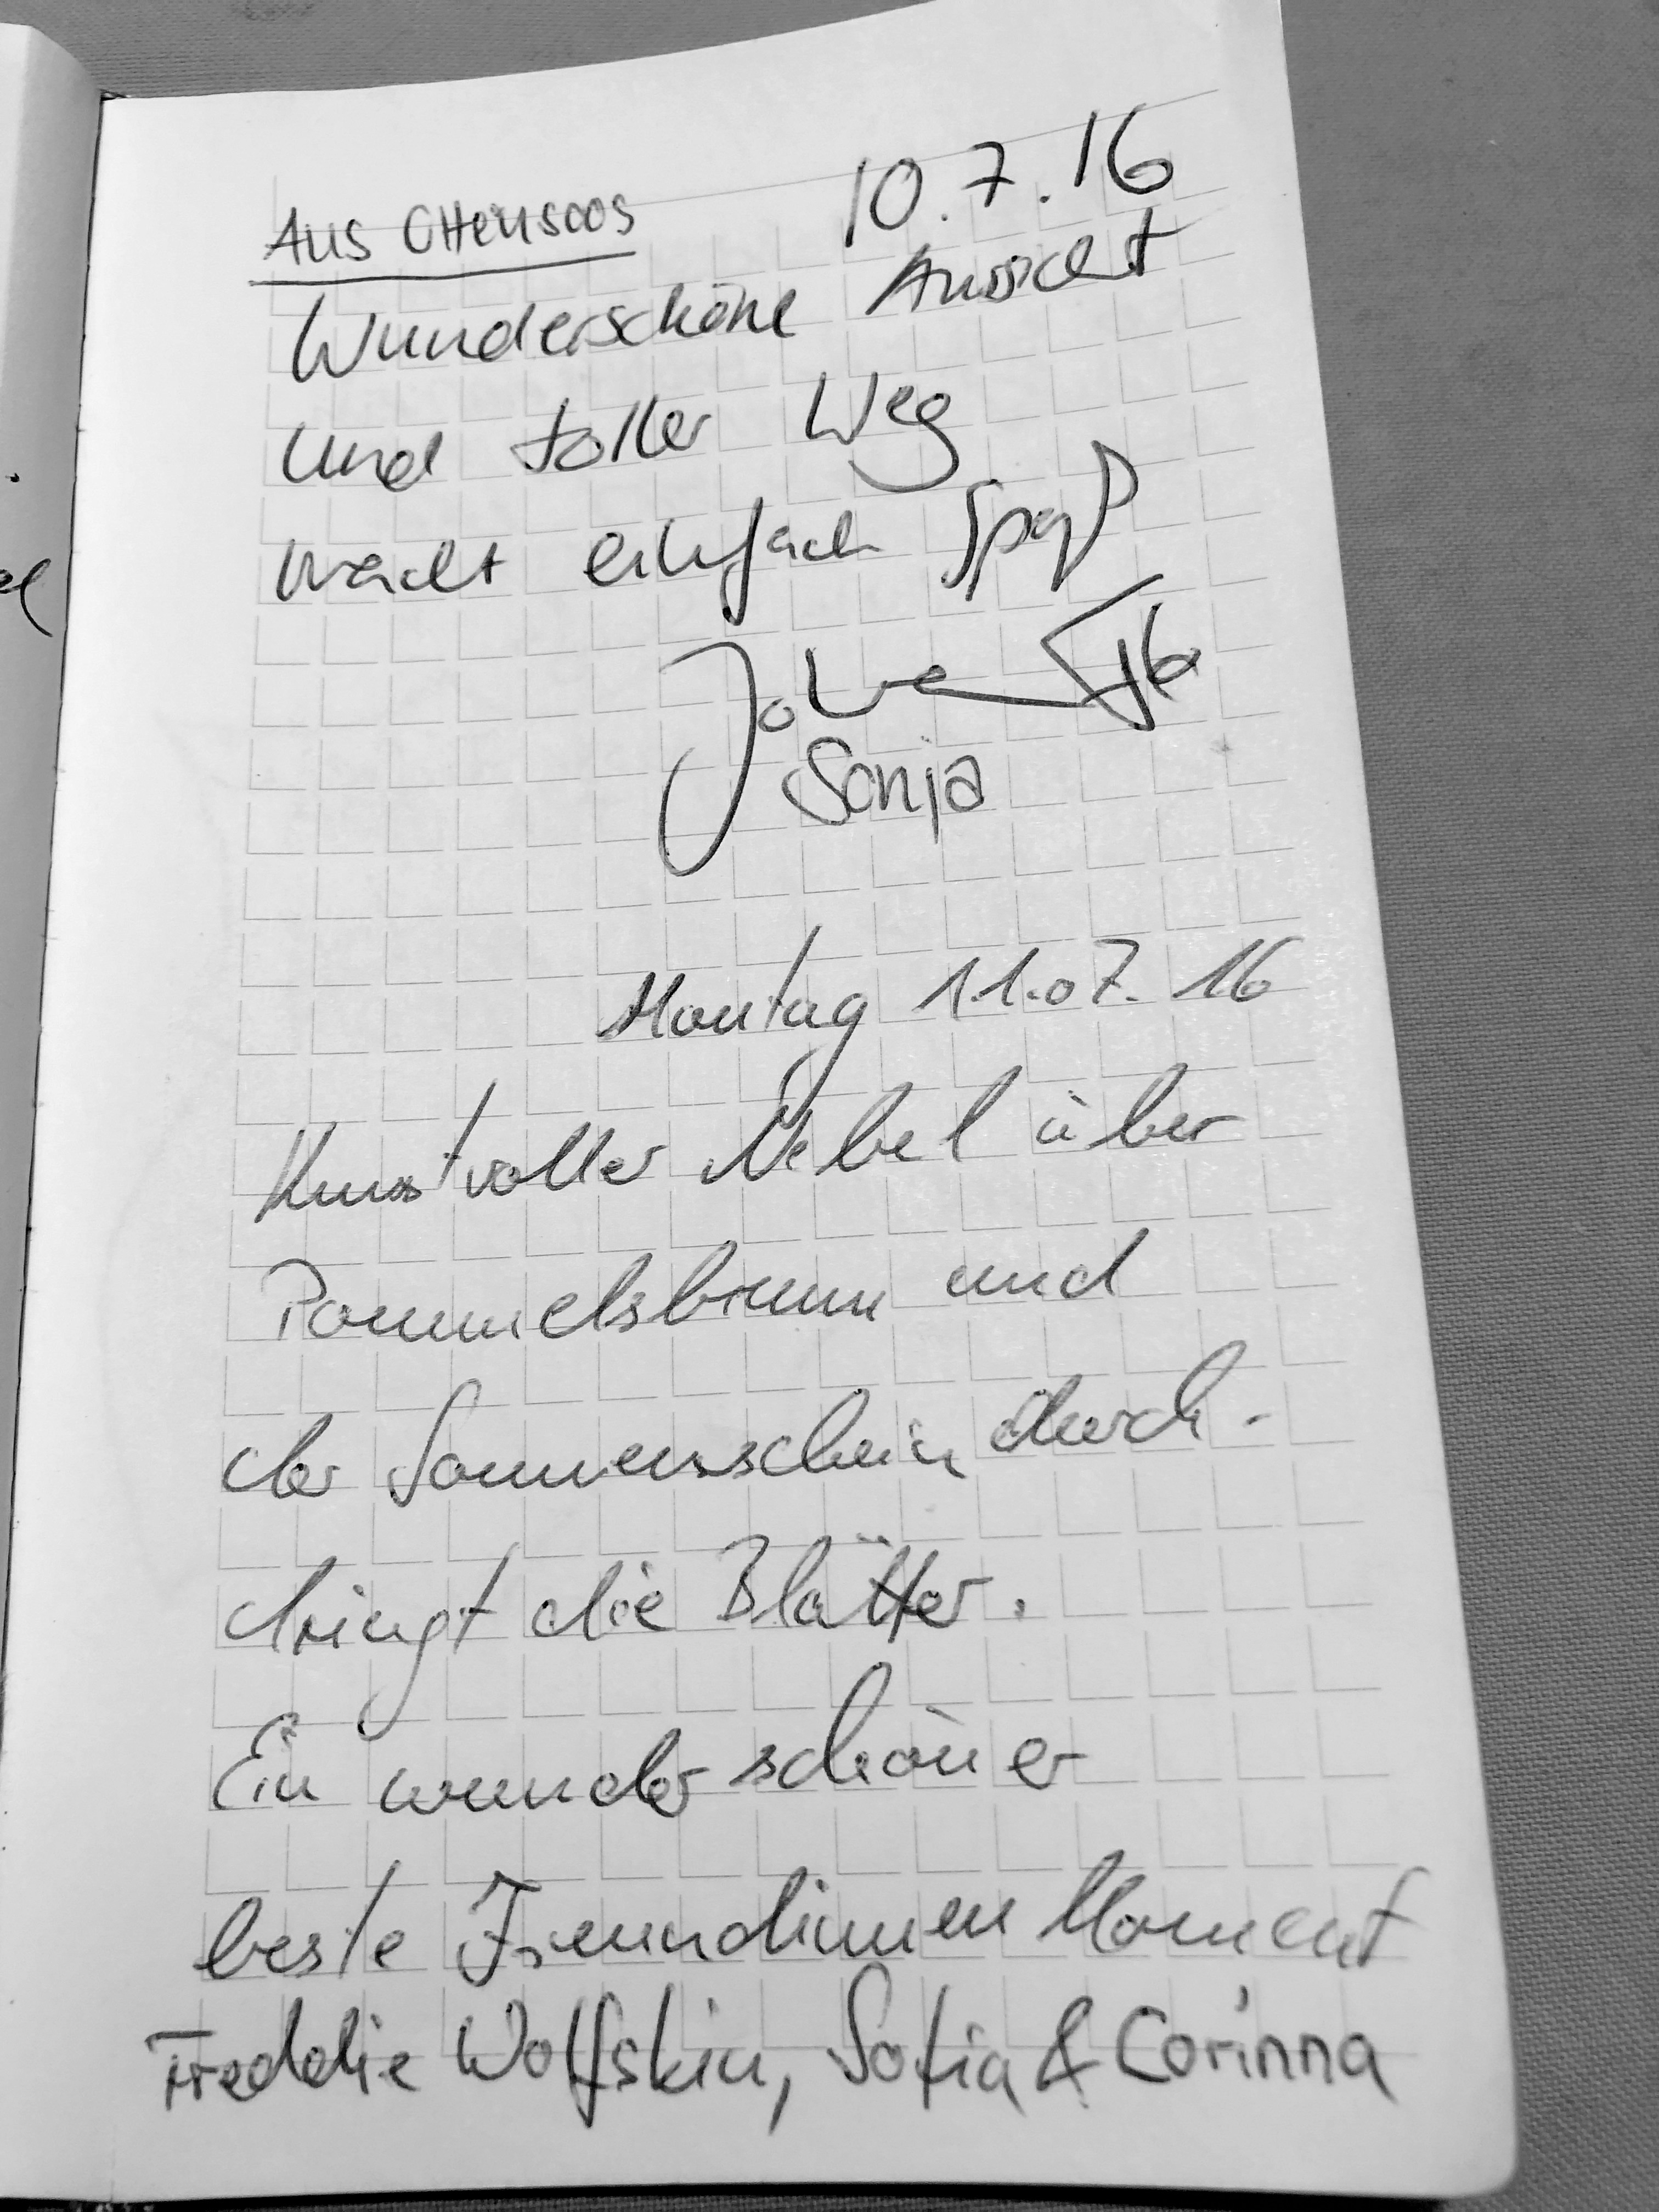 Aus Ottensoos 10.7.16
Wunderschöne Aussicht
und toller Weg
macht einfach Spaß
16
Sonja
Montag 11.07.16
Kunstvoller Nebel über
Pommelsbrunn und
der Sonnensschein durch-
dringt die Blätter.
Ein wunderschöner
beste Freundinnen Moment
Freddie Wolfskin, Sofia & Corinna